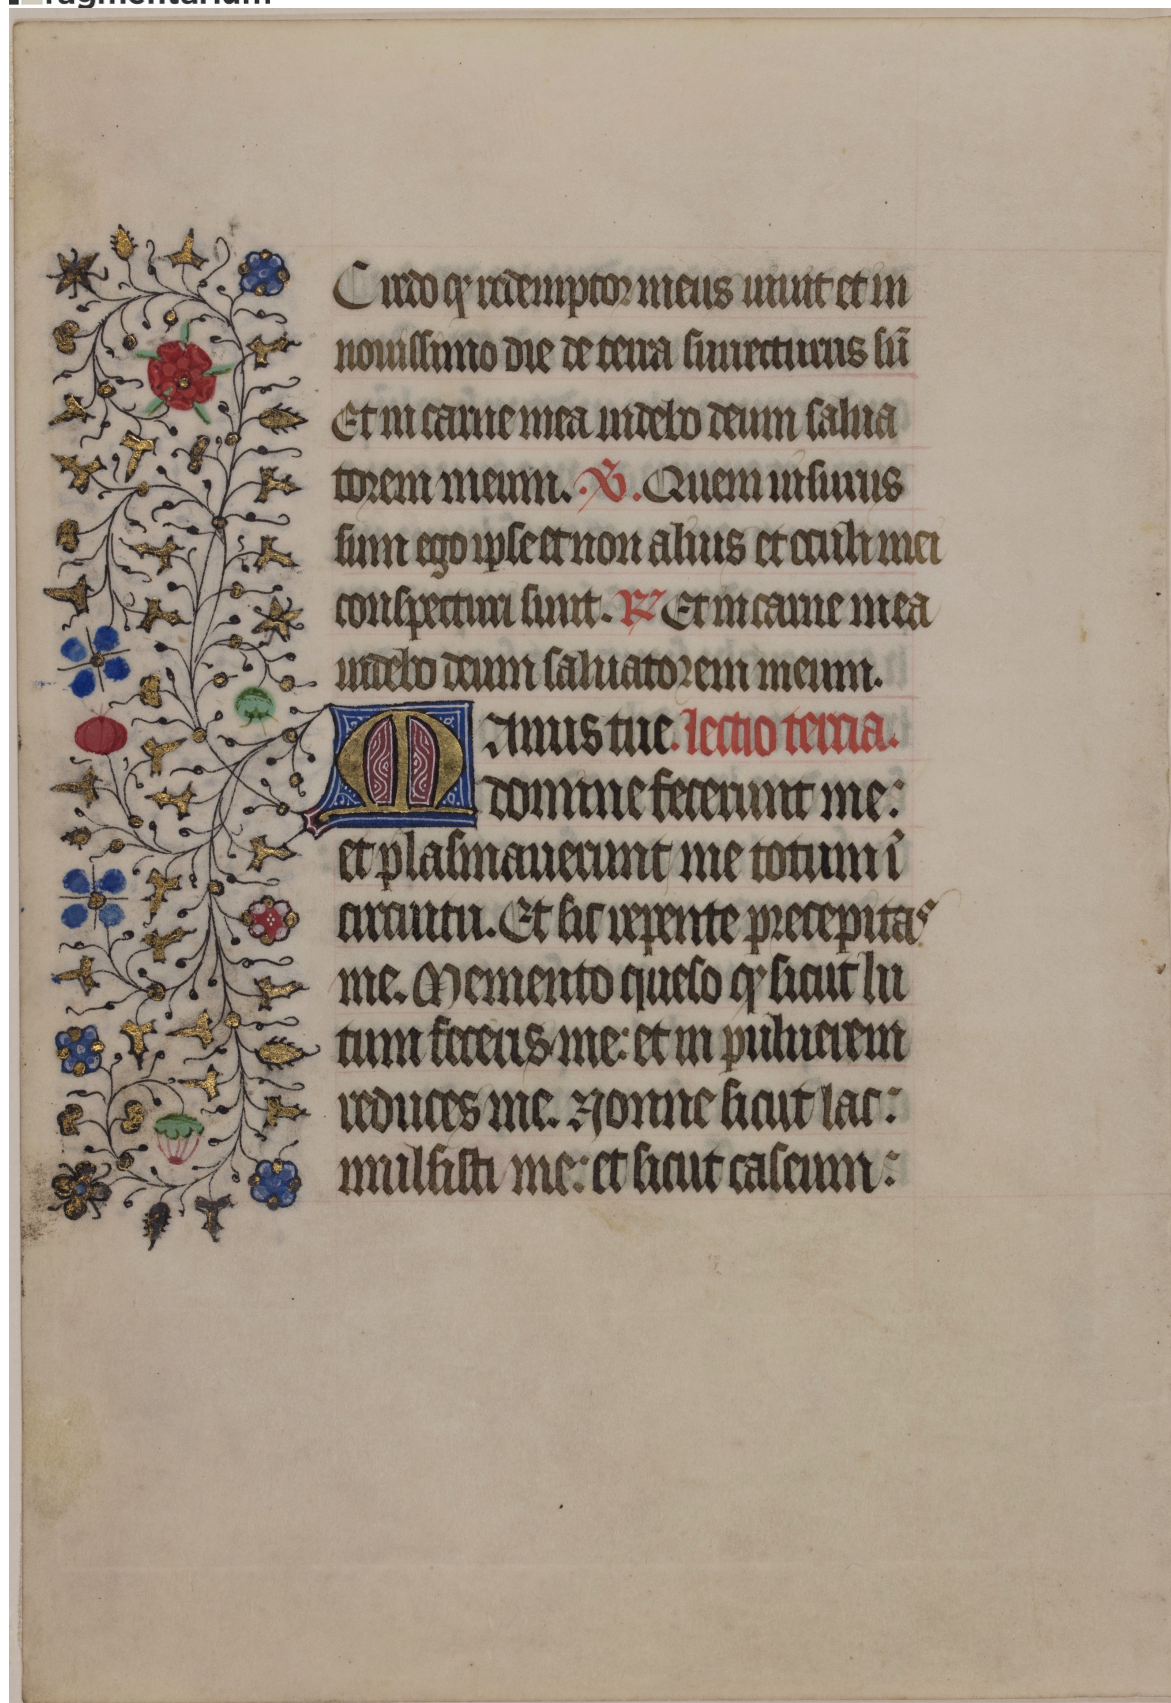 Credo q redemptor meus uiuit et in
nouissimo die de terra surrecturus sū
Et in carne mea uidebo deum salua
torem meum. V. Quem uisurus
sum ego ipse et non alius et oculi mei
conspecturi sunt. R Et in carne mea
uidebo deum saluatorem meum.
Manus tue. lectio tercia.
domine fecerunt me:
et plasmauerunt me totum ī
circuitu. Et sic repente precepitas
me. Memento queso q sicut lu
tum feceris me: et in puluerem
reduces me. Nonne sicut lac:
mulsisti me: et sicut caseum: